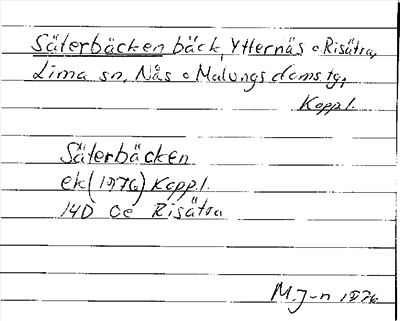 Säterbäcken bäck, Ytternäs o Risätra,
Lima sn, Nås o Malungs domstg,
Kopp.l.
Säterbäcken
ek (1976) Kopp.l.
14D Oe Risätra
M.J-n 1976